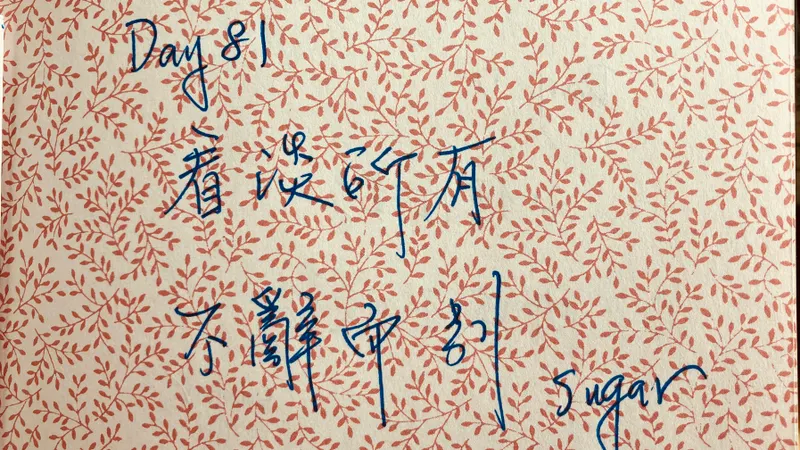 Day 81
看淡所有
不辭而别
sugar